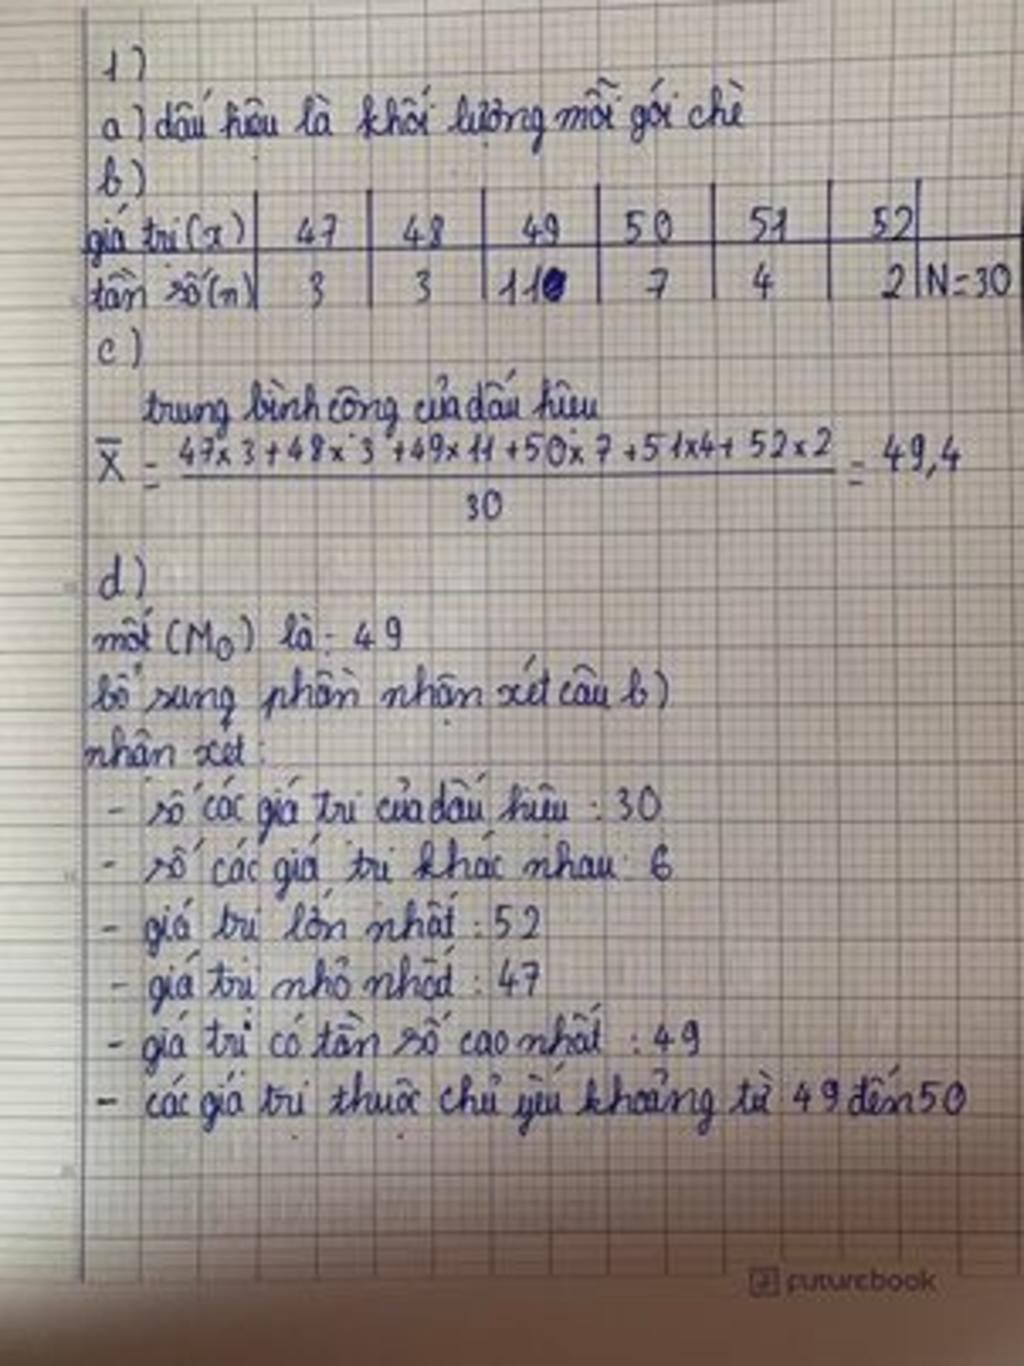 1)
a) dấu hiệu là khối lượng mỗi gói chè
b)
giá trị (x) 47 48 49 50 51 52
tần số (n) 3 3 11 7 4 2 N=30
c)
trung bình cộng của dấu hiệu
X̄ = 47x3+48x3+49x11+50x7+51x4+52x2 = 49,4
30
d)
mốt (M₀) là: 49
bổ sung phần nhận xét câu b)
nhận xét:
- số các giá trị của dấu hiệu : 30
- số các giá trị khác nhau : 6
- giá trị lớn nhất : 52
- giá trị nhỏ nhất : 47
- giá trị có tần số cao nhất : 49
- các giá trị thuộc chủ yếu khoảng từ 49 đến 50
futurebook